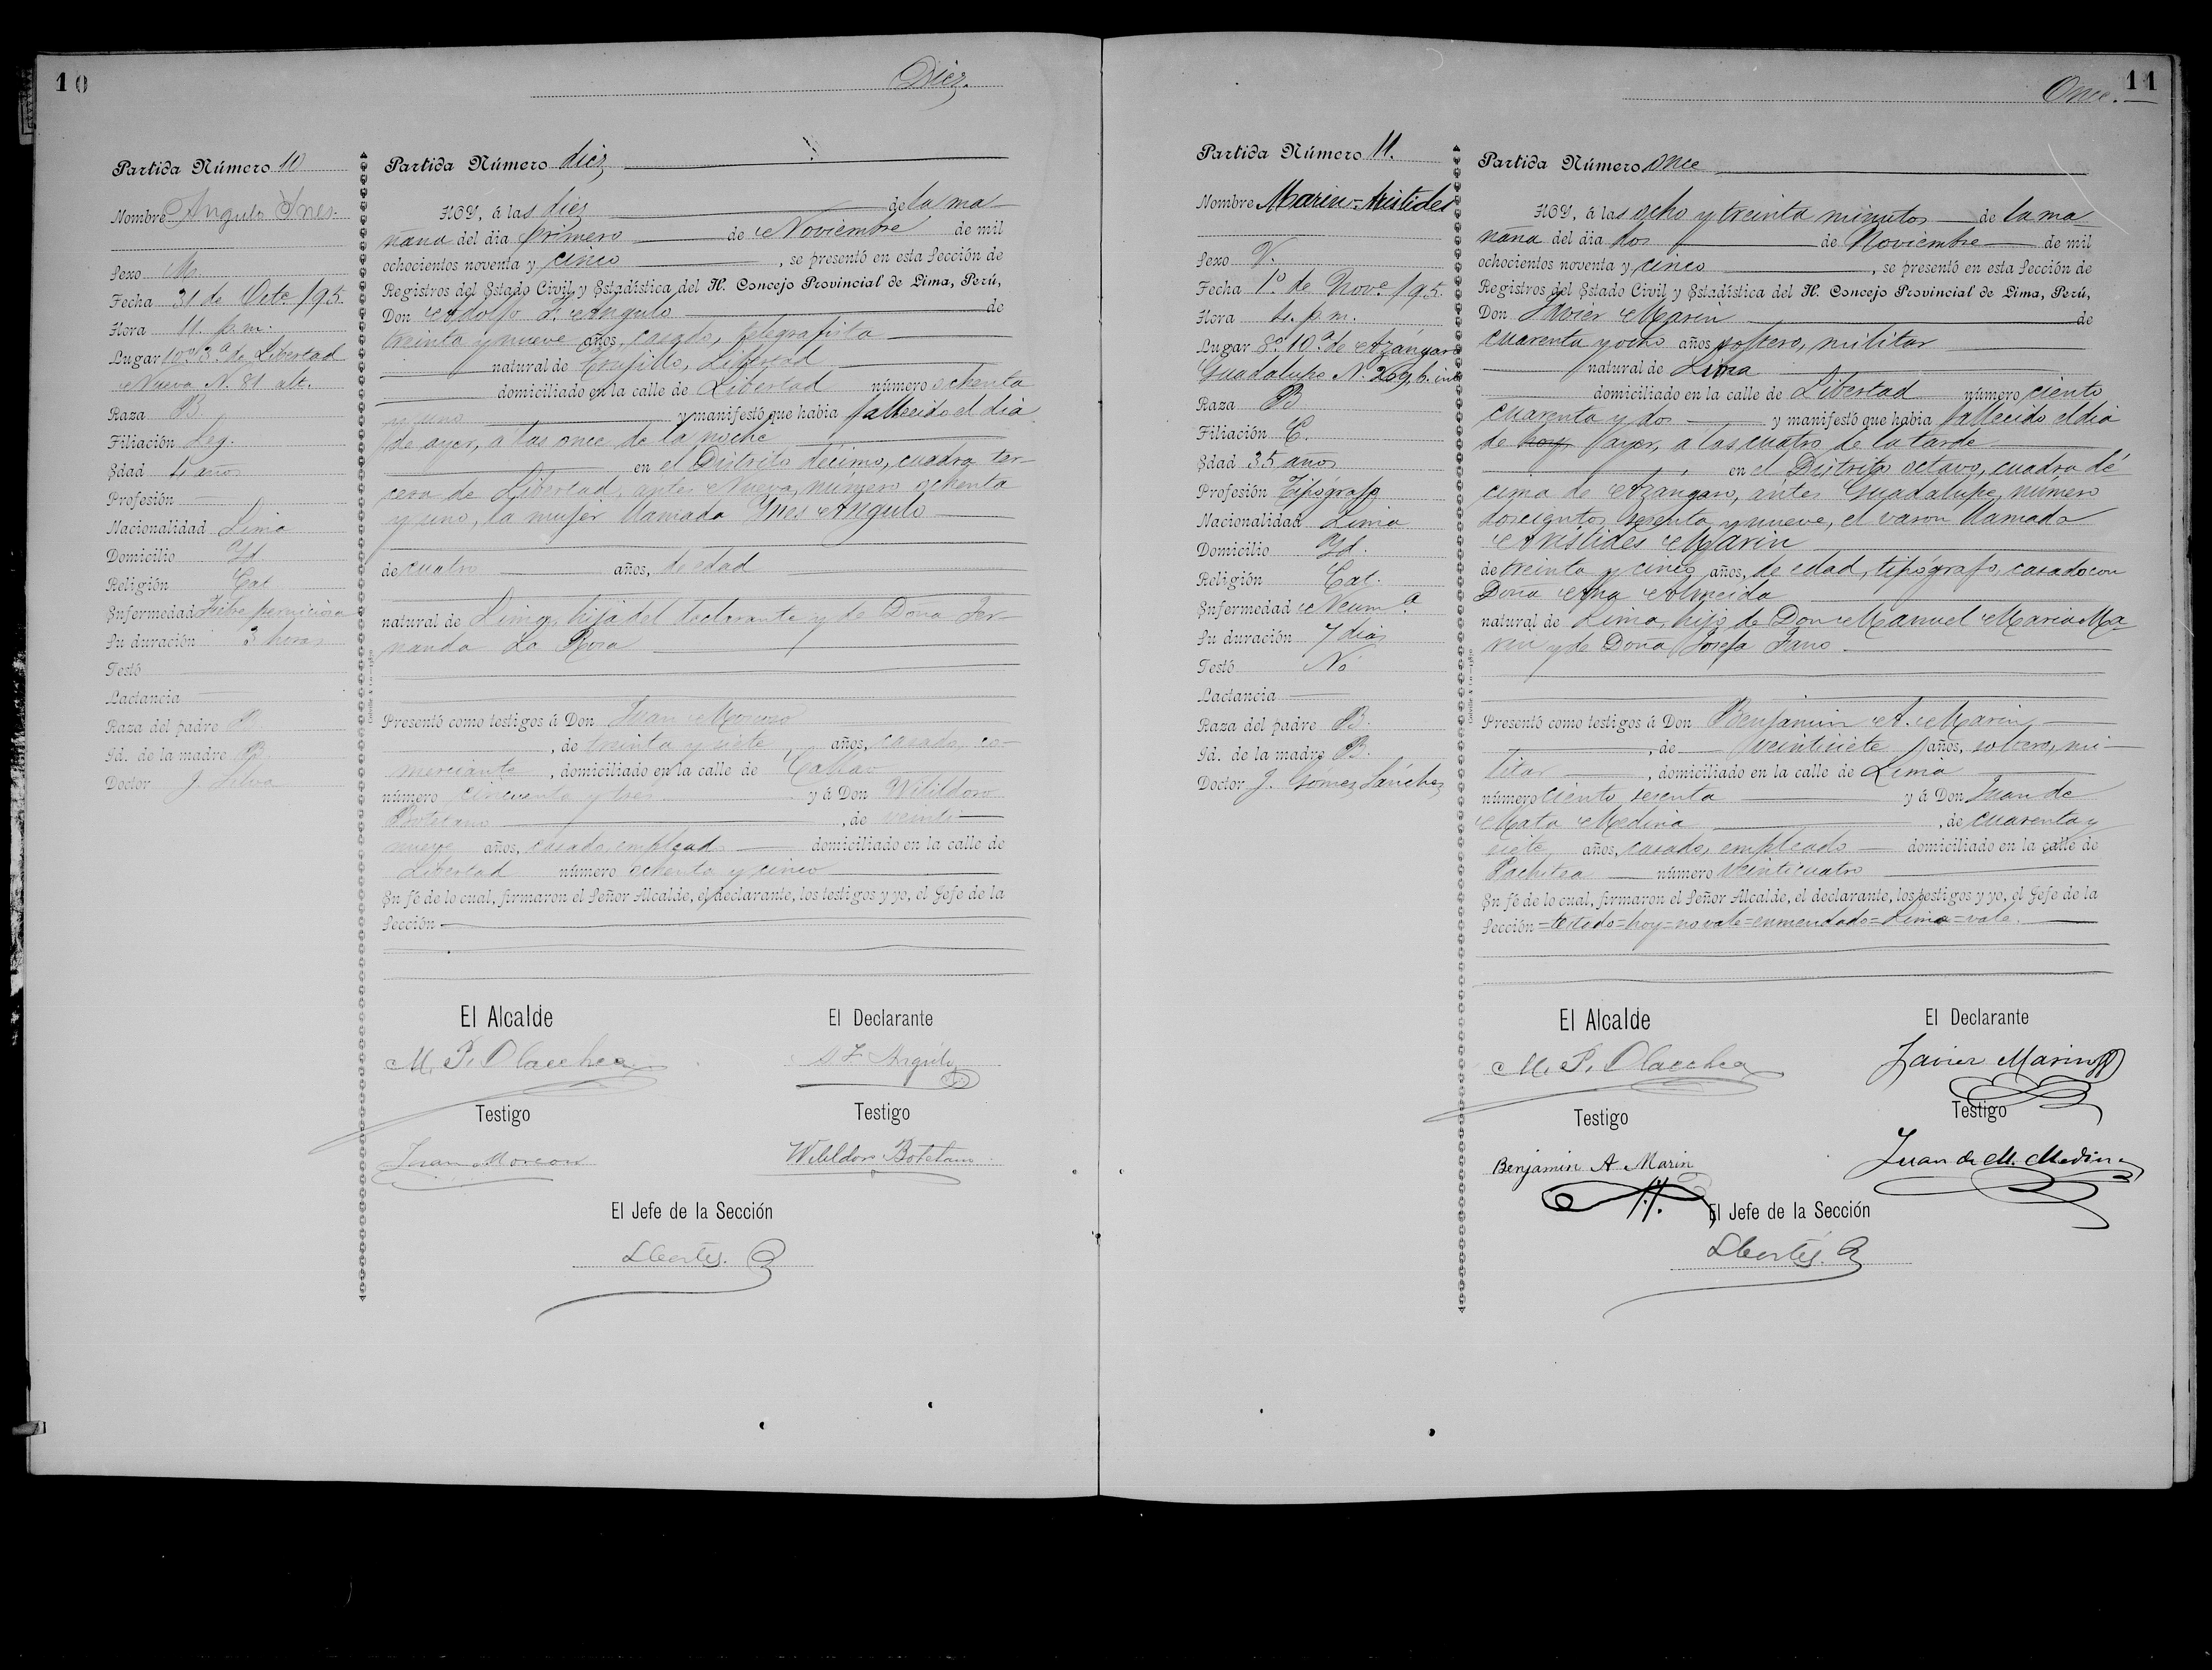 10
Diez.
Partida Número 10
Nombre Angulo Ynes.
Sexo M.
Fecha 31 de Octe /95.
Hora 11. p.m.
Lugar 10º 3ª de Libertad
Nueva N. 81 alt.
Raza B
Filiación Leg.
Edad 4 años
Profesión —
Nacionalidad Lima
Domicilio Yd
Religión Cat
Enfermedad Fiebre perniciosa
Su duración 3 horas
Testó
Lactancia
Raza del padre B
Id. de la madre B.
Doctor J. Silva
Partida Número diez
HOY, á las diez de la ma-
ñana del dia primero de Noviembre de mil
ochocientos noventa y cinco, se presentó en esta Sección de
Registros del Estado Civil y Estadística del H. Concejo Provincial de Lima, Perú,
Don Adolfo F. Angulo de
treinta y nueve años, casado, telegrafista
natural de Trujillo, Libertad
domiciliado en la calle de Libertad número ochenta
y uno y manifestó que habia fallecido el dia
de ayer, á las once de la noche
en el Distrito décimo, cuadra ter-
cera de Libertad, antes Nueva, número ochenta
y uno, la mujer llamada Ynes Angulo
de cuatro años, de edad
natural de Lima, hija del declarante y de Doña Fer-
nanda La Rosa
Presentó como testigos á Don Juan Moreno
, de treinta y siete años, casado, co-
merciante, domiciliado en la calle de Callao
número cincuenta y tres y á Don Wilildoro
Botetano, de veinti-
nueve años, casado, empleado domiciliado en la calle de
Libertad número ochenta y cinco
En fé de lo cual, firmaron el Señor Alcalde, el declarante, los testigos y yo, el Gefe de la
Sección
El Alcalde
El Declarante
M. P. Olaechea
A F. Angulo
Testigo
Testigo
Juan Moreno
Wilildoro Botetano
El Jefe de la Sección
L Cortés.
11
Once.
Partida Número 11.
Nombre Marin = Aristides
Sexo V.
Fecha 1º de Nove /95.
Hora 4. p.m.
Lugar 8º 10ª de Azángaro
Guadalupe N. 269 b. int
Raza B
Filiación L.
Edad 35 años
Profesión Tipógrafo
Nacionalidad Lima
Domicilio Yd.
Religión Cat.
Enfermedad Neumª
Su duración 7 dias
Testó No
Lactancia —
Raza del padre B.
Id. de la madre B.
Doctor J. Gomez Sánchez
Partida Número once
HOY, á las ocho y treinta minutos de la ma
ñana del dia dos de Noviembre de mil
ochocientos noventa y cinco, se presentó en esta Sección de
Registros del Estado Civil y Estadística del H. Concejo Provincial de Lima, Perú,
Don Javier Marin de
cuarenta y ocho años soltero, militar
natural de Lima
domiciliado en la calle de Libertad número ciento
cuarenta y dos y manifestó que habia fallecido el dia
de hoy ayer, a las cuatro de la tarde
en el Distrito octavo, cuadra dé
cima de Azángaro, ántes Guadalupe, número
doscientos sesenta y nueve, el varon llamado
Aristides Marin
de treinta y cinco años, de edad, tipógrafo, casado con
Doña Ana Almeida
natural de Lima, hijo de Don Manuel Maria Ma-
rin y de Doña Josefa
Presentó como testigos á Don Benjamin A. Marin
, de veintisiete años, soltero, mi-
litar, domiciliado en la calle de Lima
número ciento sesenta y á Don Juan de
Mata Medina, de cuarenta y
siete años, casado, empleado domiciliado en la calle de
Pachitea número veinticuatro
En fé de lo cual, firmaron el Señor Alcalde, el declarante, los testigos y yo, el Gefe de la
Sección = testado = hoy = no vale = enmendado = Lima = vale.
El Alcalde
El Declarante
M. P. Olaechea
Javier Marin
Testigo
Testigo
Benjamin A Marin
Juan de M. Medina
El Jefe de la Sección
L Cortés.